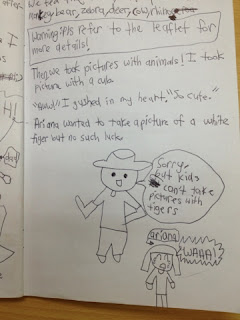 we fed
key bear, zebra, deer, cow, rhino
Warning: Pls refer to the leaflet for
more details!
Then we took pictures with animals! I took
picture with a cub.
I gushed in my heart, "So cute."
Ariana wanted to take a picture of a white
tiger but no such luck.
Sorry,
but kids
can't take
pictures with
tigers
ariana
WAAA!
I
HI!
dad!